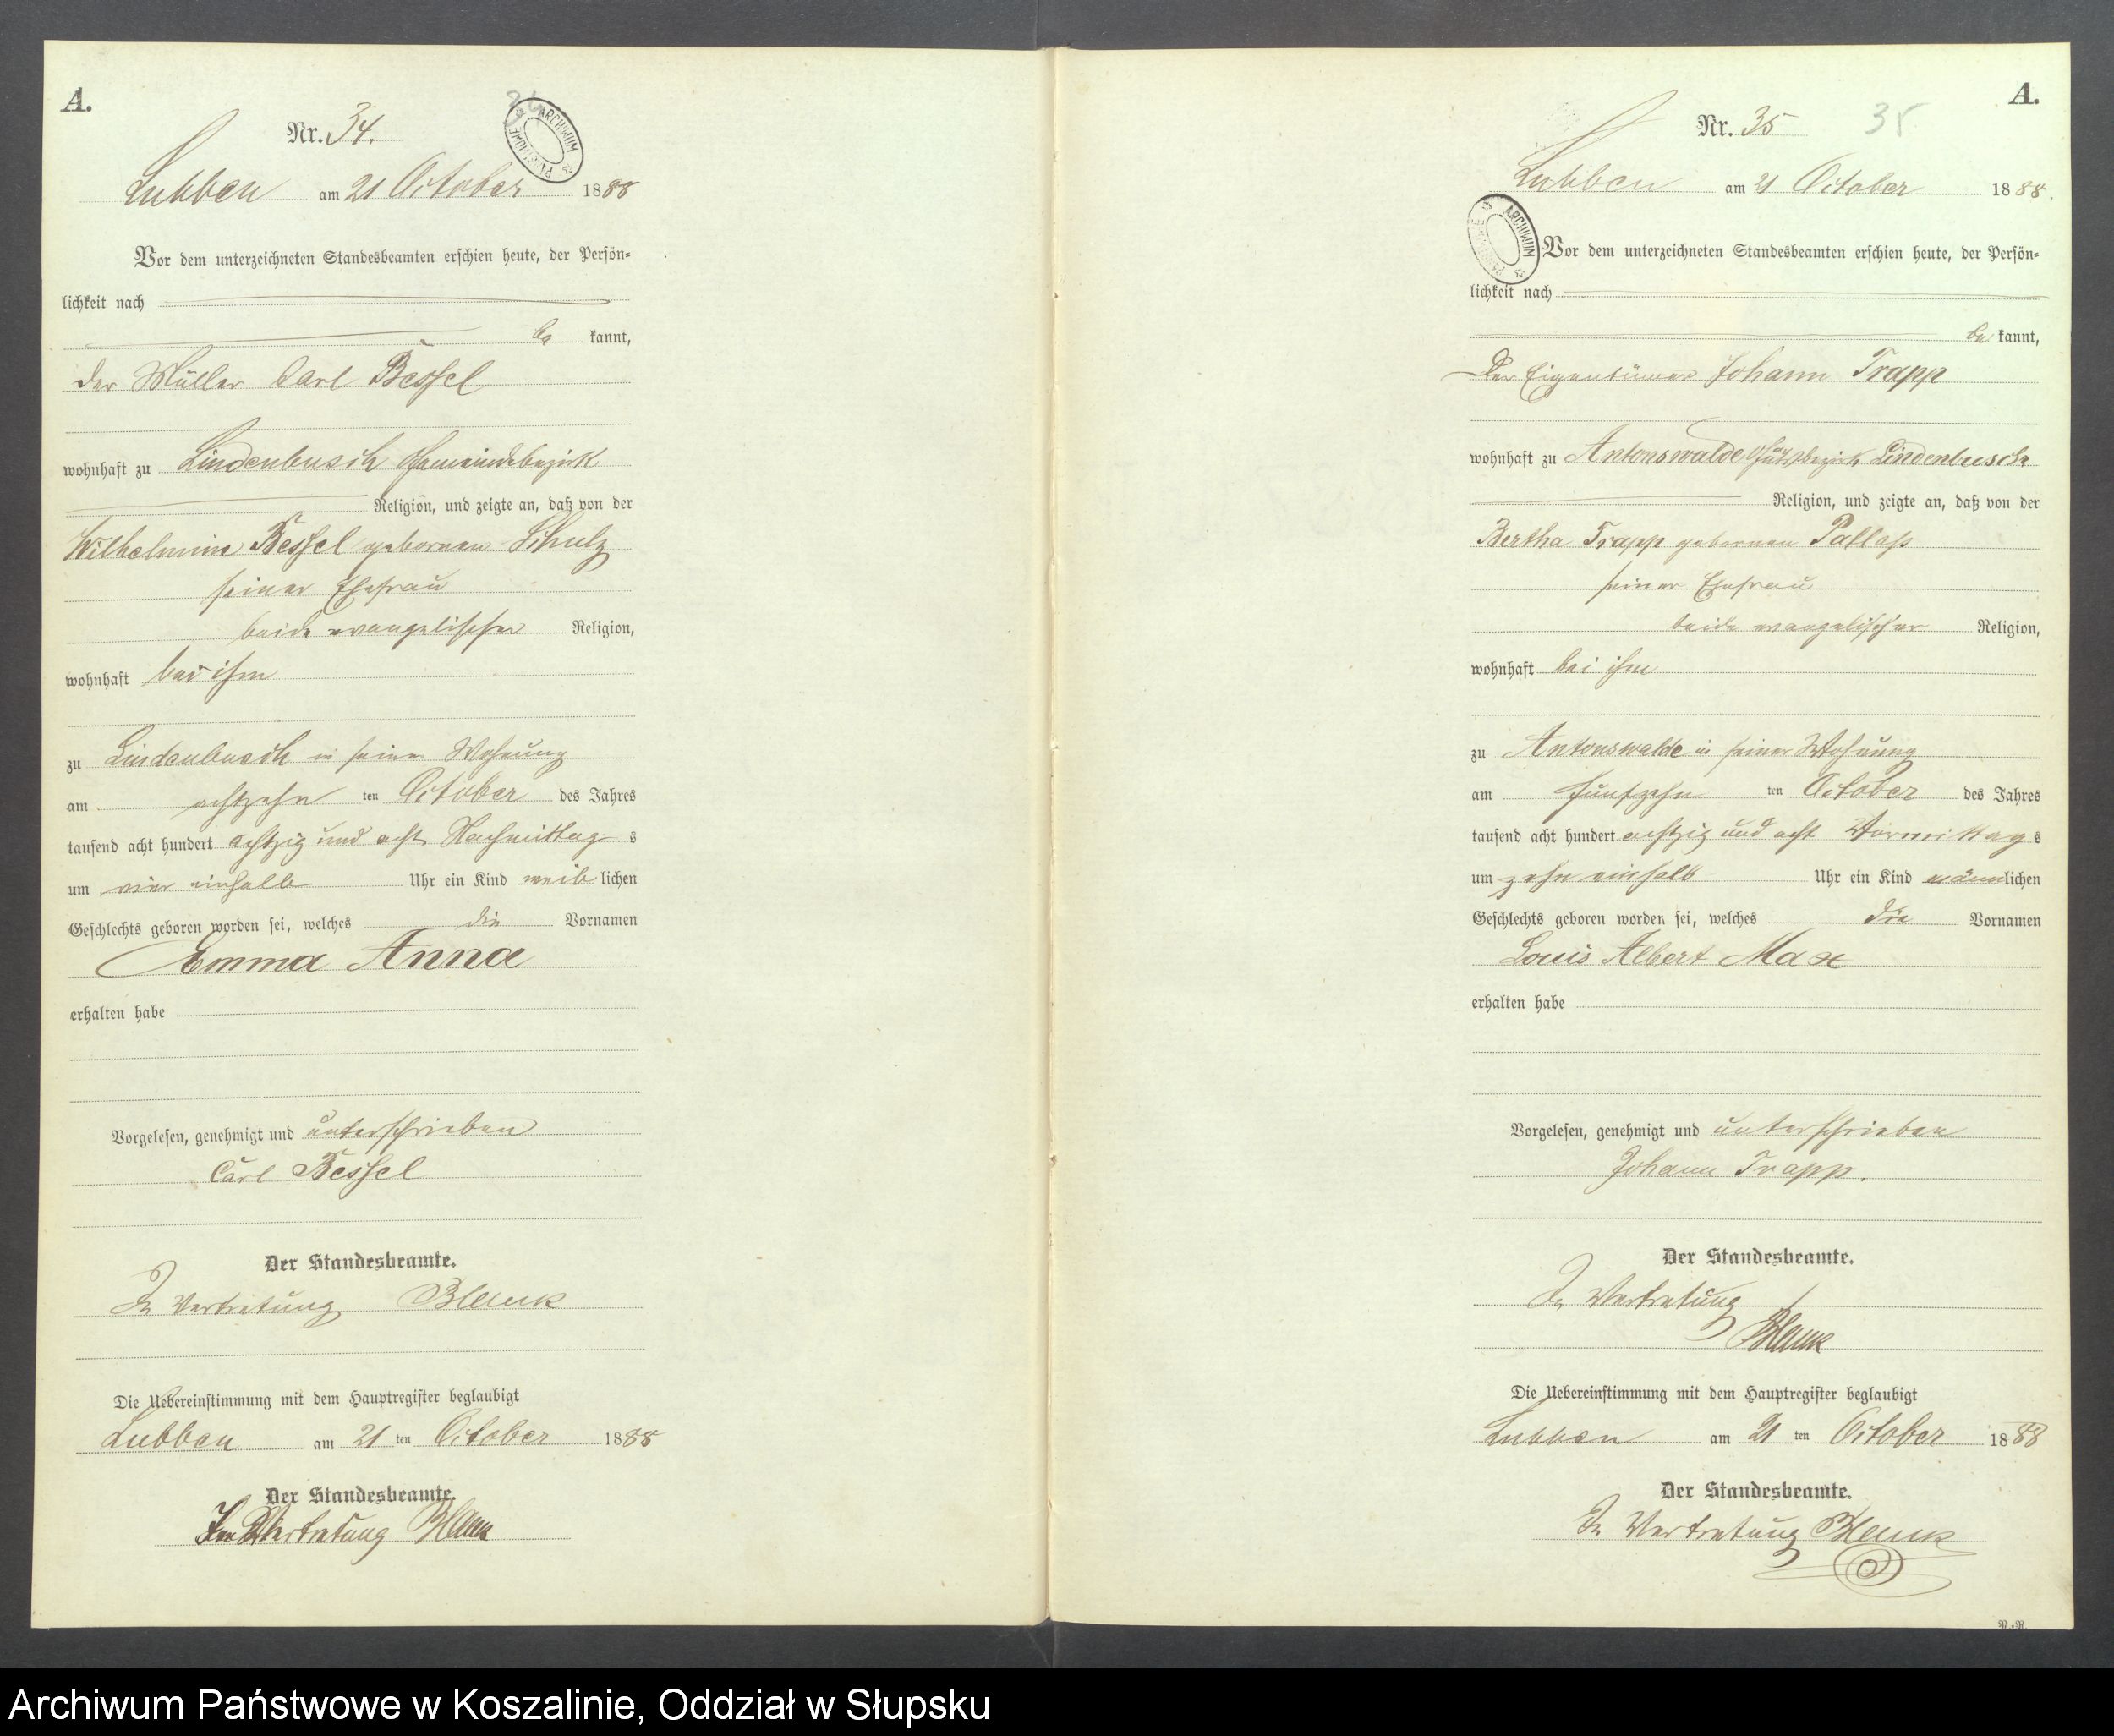 A.
Nr. 34.
ARCHIWUM
Lubben am 21 October 1888
Vor dem unterzeichneten Standesbeamten erschien heute, der Persön-
lichkeit nach
be kannt,
der Müller Carl Bessel
wohnhaft zu Lindenbusch Gemeindebezirk
Religion, und zeigte an, daß von der
Wilhelmine Bessel gebornen Schulz
seiner Ehefrau
beide evangelischer Religion,
wohnhaft bei ihm
zu Lindenbusch in seiner Wohnung
am achtzehn ten October des Jahres
tausend acht hundert achtzig und acht Nachmittag s
um vier einhalb Uhr ein Kind weib lichen
Geschlechts geboren worden sei, welches die Vornamen
Emma Anna
erhalten habe
Vorgelesen, genehmigt und unterschrieben
Carl Bessel
Der Standesbeamte.
In Vertretung Blank
Die Uebereinstimmung mit dem Hauptregister beglaubigt
Lubben am 21 ten October 1888
Der Standesbeamte.
In Vertretung Blank
A.
Nr. 35 35
Lubben am 21 October 1888.
ARCHIWUM
Vor dem unterzeichneten Standesbeamten erschien heute, der Persön-
lichkeit nach
be kannt,
Der Eigentümer Johann Trapp
wohnhaft zu Antonswalde Gutsbezirk Lindenbusch
Religion, und zeigte an, daß von der
Bertha Trapp gebornen Pallaß
seiner Ehefrau
beide evangelischer Religion,
wohnhaft bei ihm
zu Antonswalde in seiner Wohnung
am fünfzehn ten October des Jahres
tausend acht hundert achtzig und acht Vormittag s
um zehn einhalb Uhr ein Kind männlichen
Geschlechts geboren worden sei, welches die Vornamen
Louis Albert Max
erhalten habe
Vorgelesen, genehmigt und unterschrieben
Johann Trapp.
Der Standesbeamte.
In Vertretung
Blank
Die Uebereinstimmung mit dem Hauptregister beglaubigt
Lubben am 21 ten October 1888
Der Standesbeamte.
In Vertretung Blank
Archiwum Państwowe w Koszalinie, Oddział w Słupsku